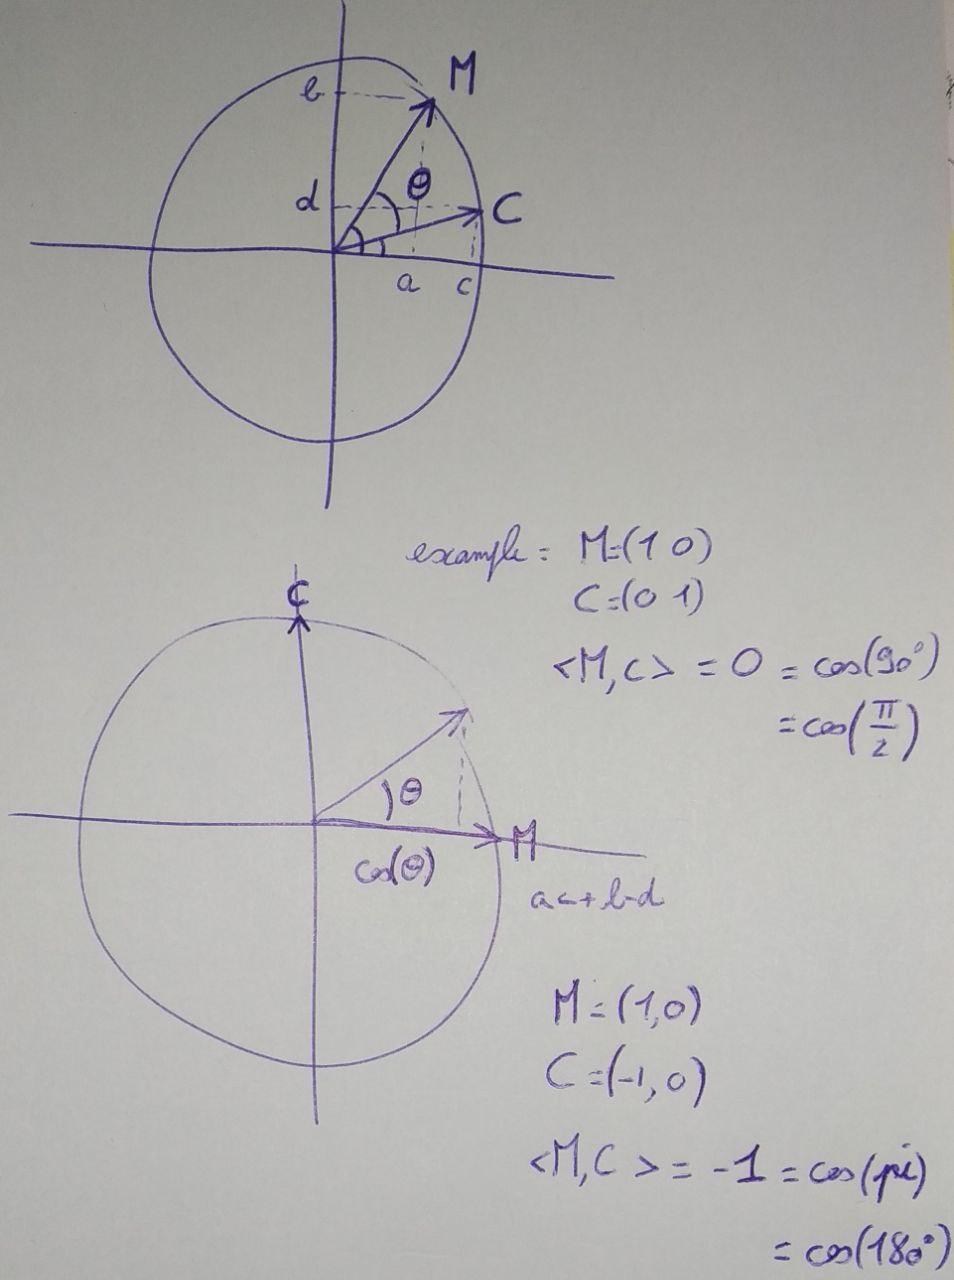 M
b
θ
d
C
a c
example = M=(1 0)
C=(0 1)
C
<M,C> = 0 = cos(90°)
= cos(π/2)
θ
M
cos(θ)
ac+b-d
M = (1,0)
C = (-1, 0)
<M,C> = -1 = cos(pi)
= cos(180°)